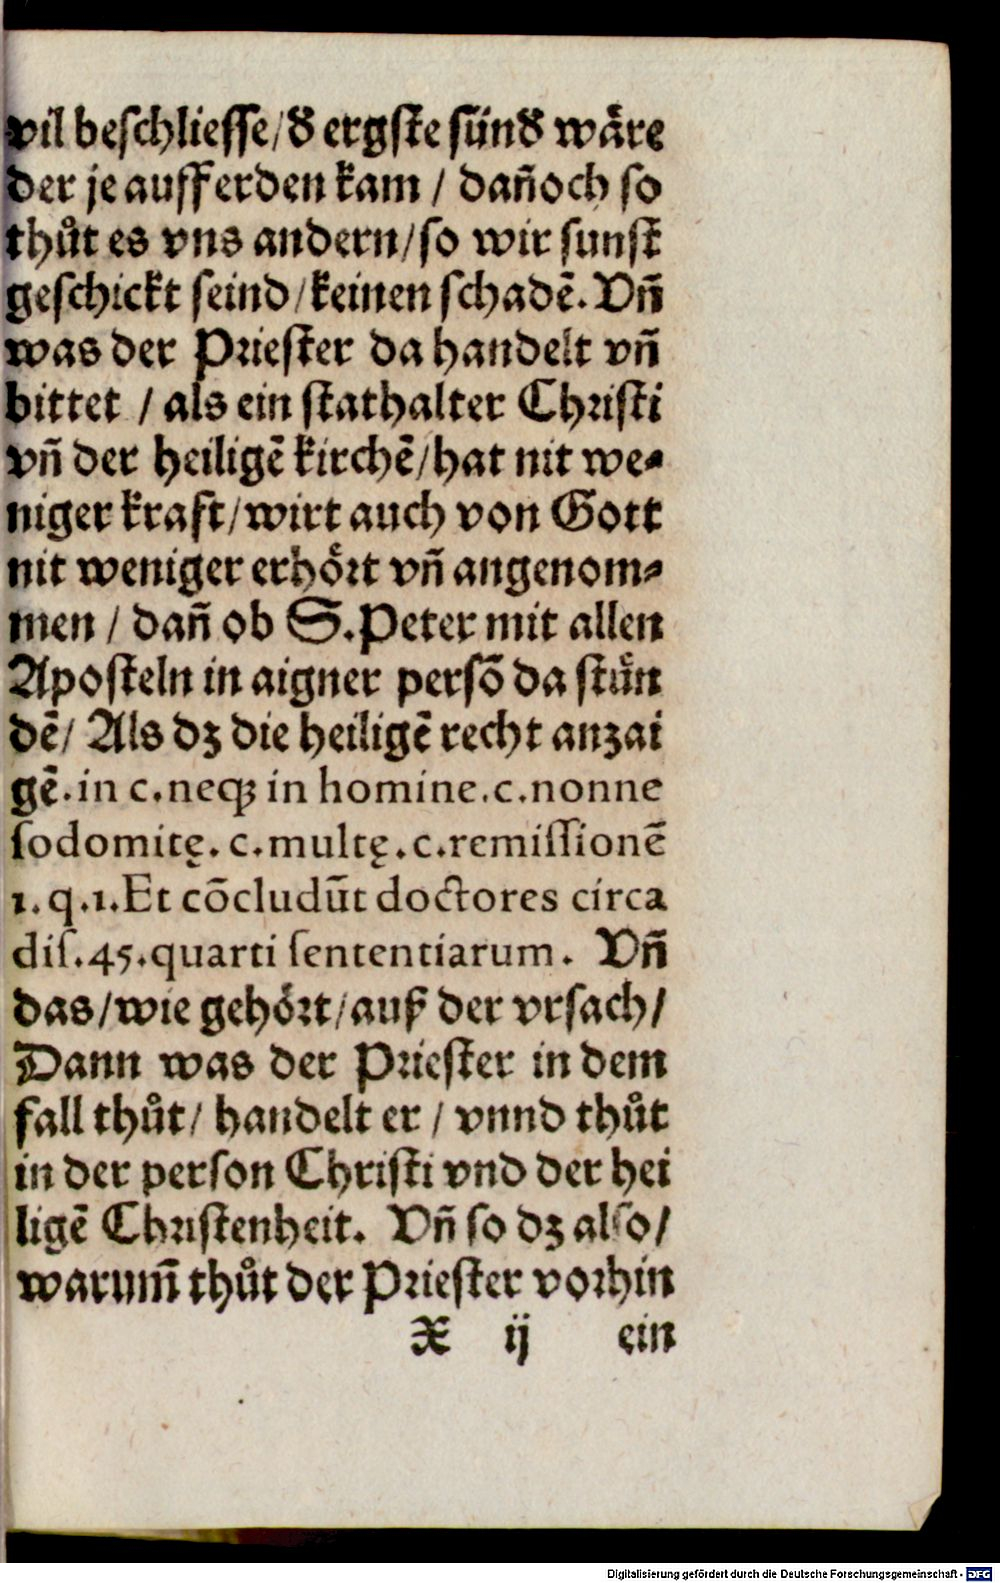 vil beschliesse/ď ergste sünď wäre
der je auff erden kam / dañoch so
thůt es vns andern/so wir sunst
geschickt seind/keinen schadē. Vñ
was der Priester da handelt vñ
bittet / als ein stathalter Christi
vñ der heiligē kirchē/hat nit we-
niger kraft/wirt auch von Gott
nit weniger erhört vñ angenom-
men / dañ ob S.Peter mit allen
Aposteln in aigner persō da stůn
dē/ Als dz die heiligē recht anzai
gē.in c.neqꝫ in homine.c.nonne
sodomitę. c.multę.c.remissionē
1.q.1.Et cōcludūt doctores circa
dis.45.quarti sententiarum. Vñ
das/wie gehört/auß der vrsach/
Dann was der Priester in dem
fall thůt/ handelt er / vnnd thůt
in der person Christi vnd der hei
ligē Christenheit. Vñ so dz also/
warum̃ thůt der Priester vorhin
X ij ein
Digitalisierung gefördert durch die Deutsche Forschungsgemeinschaft - DFG